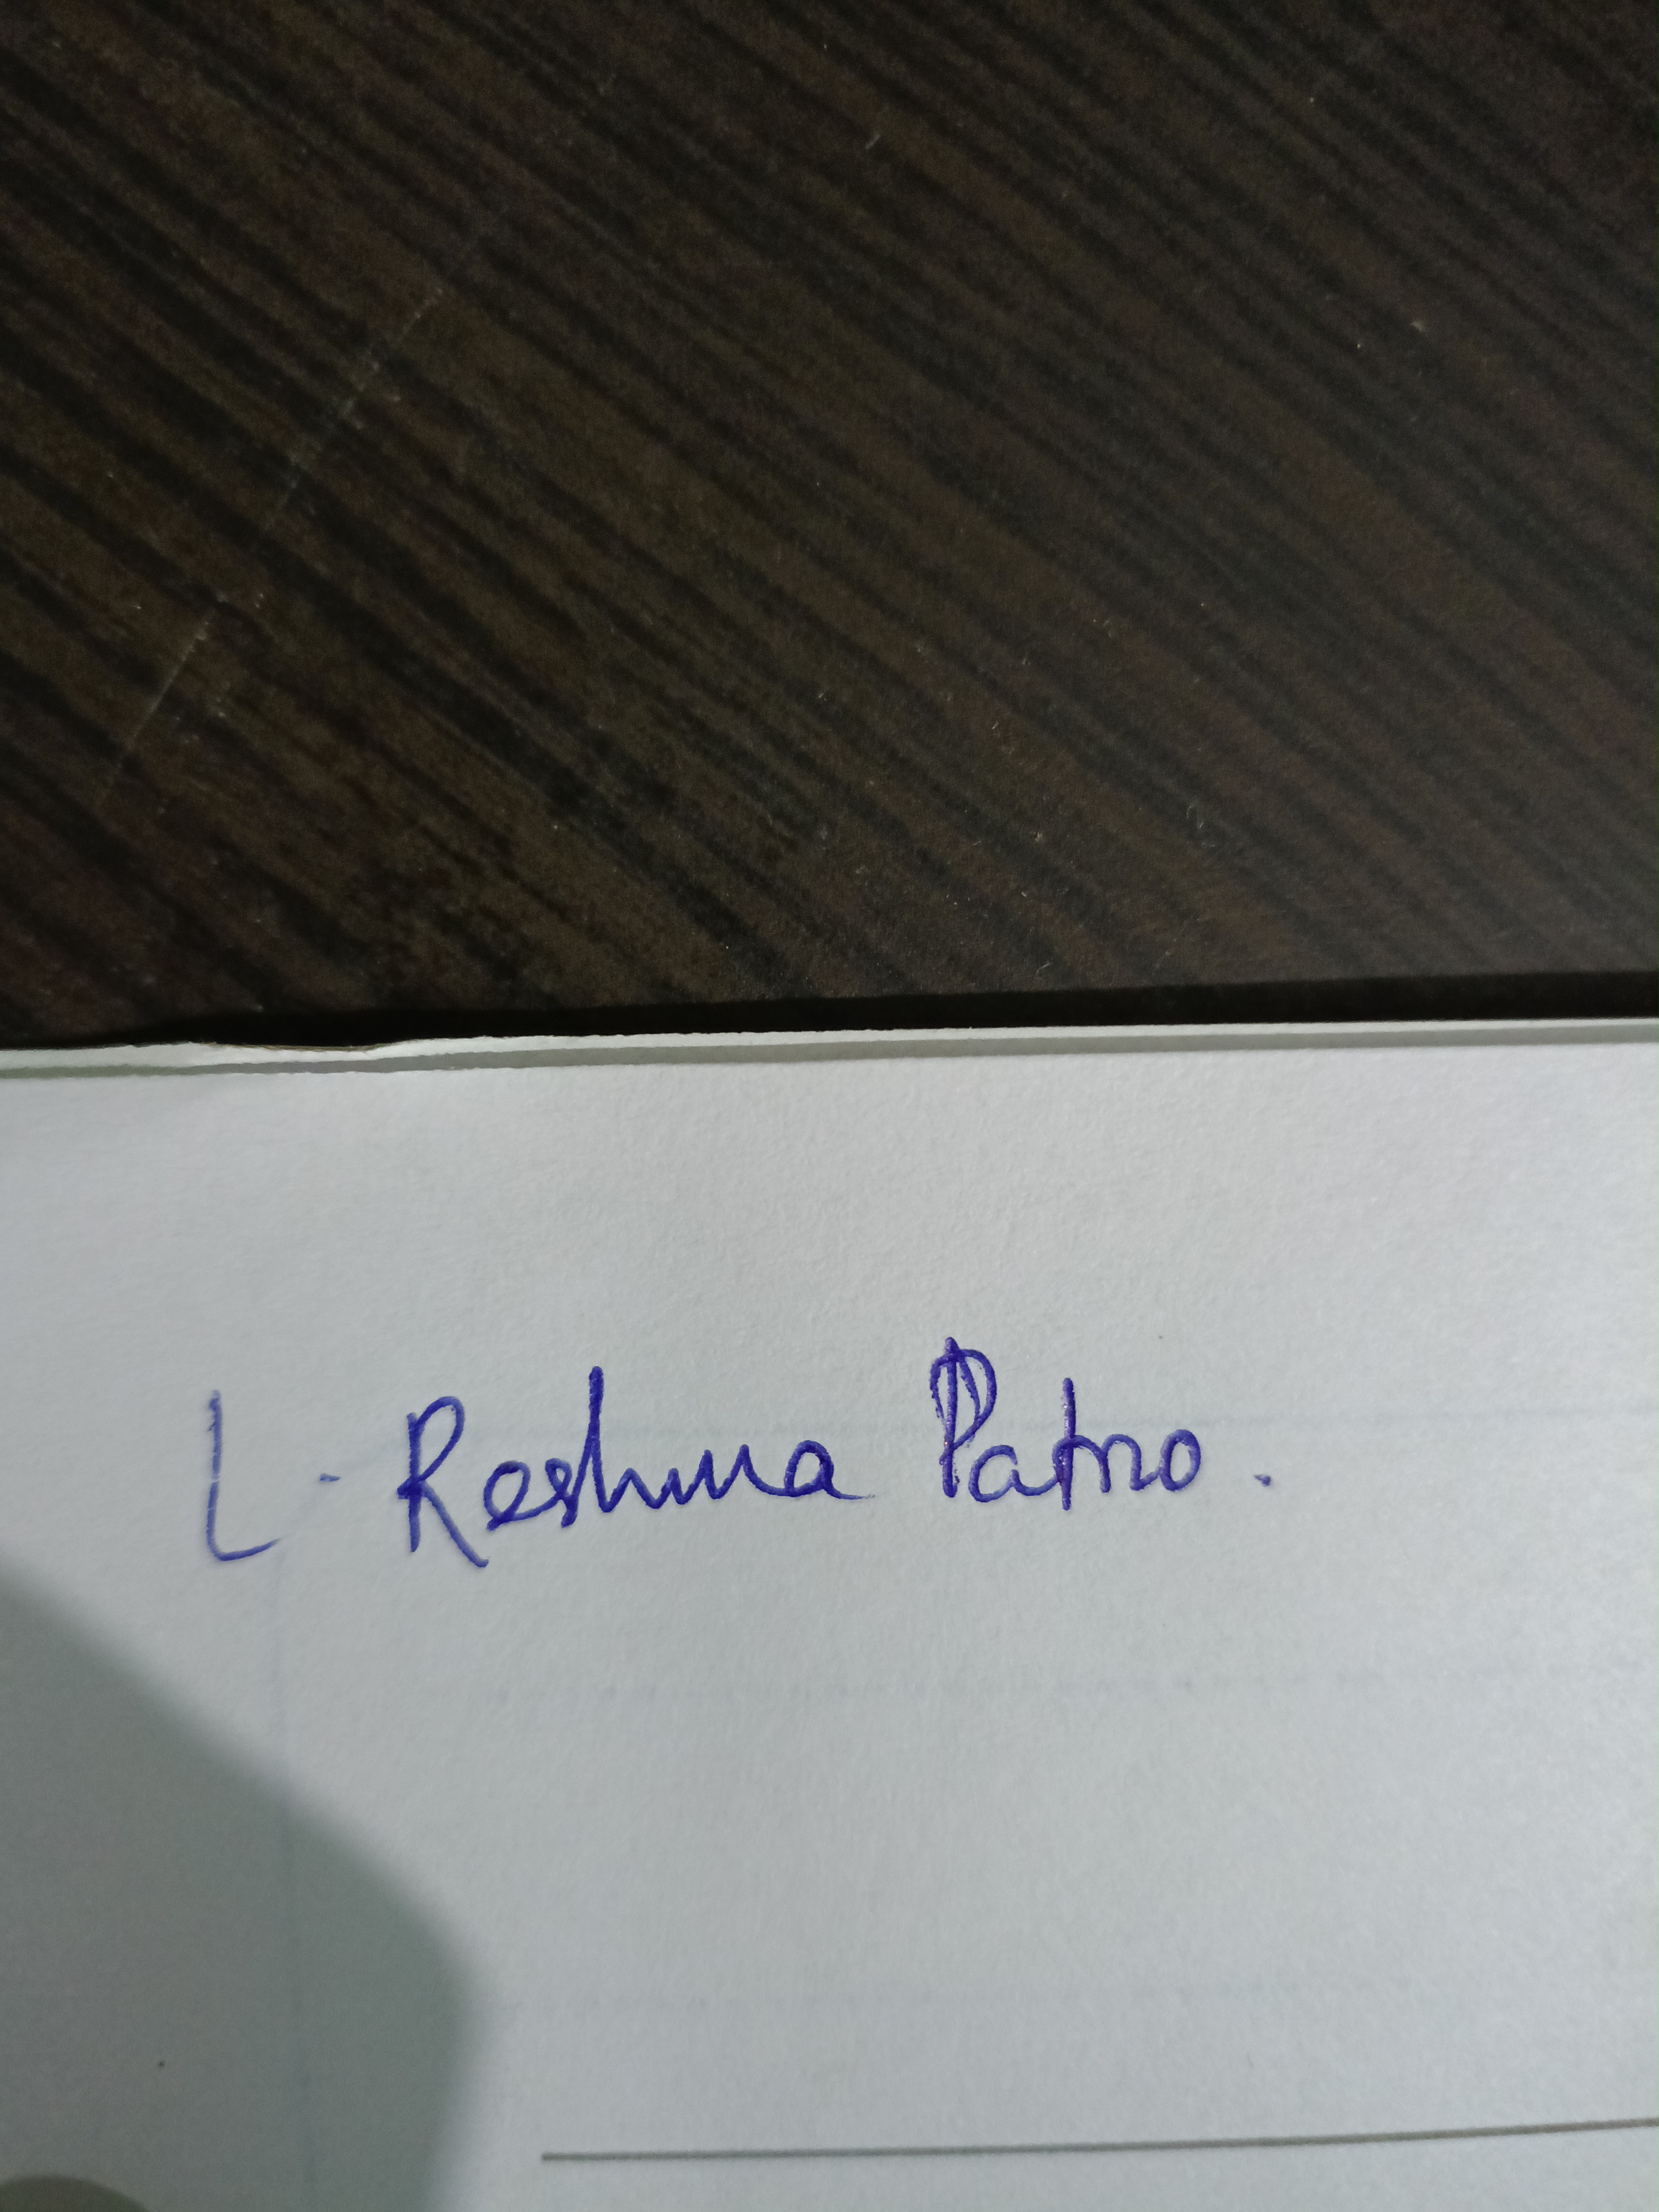 L. Reshma Patro.